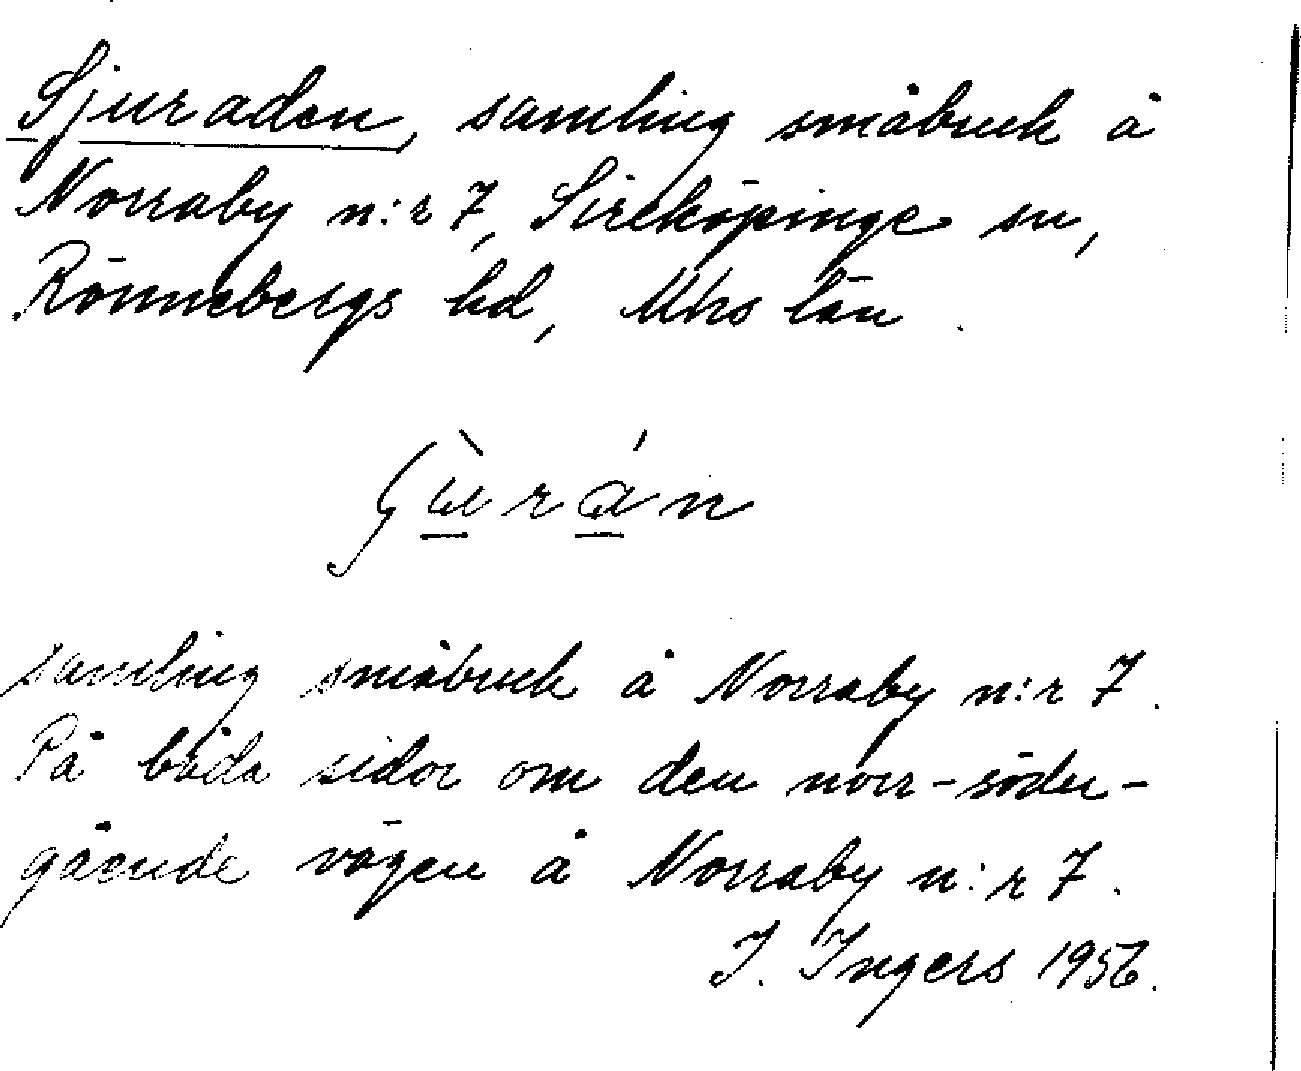 Sjuraden, samling småbruk å
Norraby n:r 7, Sireköpinge sn,
Rönnebergs hd, Mhs län.
samling småbruk å Norraby n:r 7.
På båda sidor om den norr-söder-
gående vägen å Norraby n:r 7.
I. Ingers 1956.